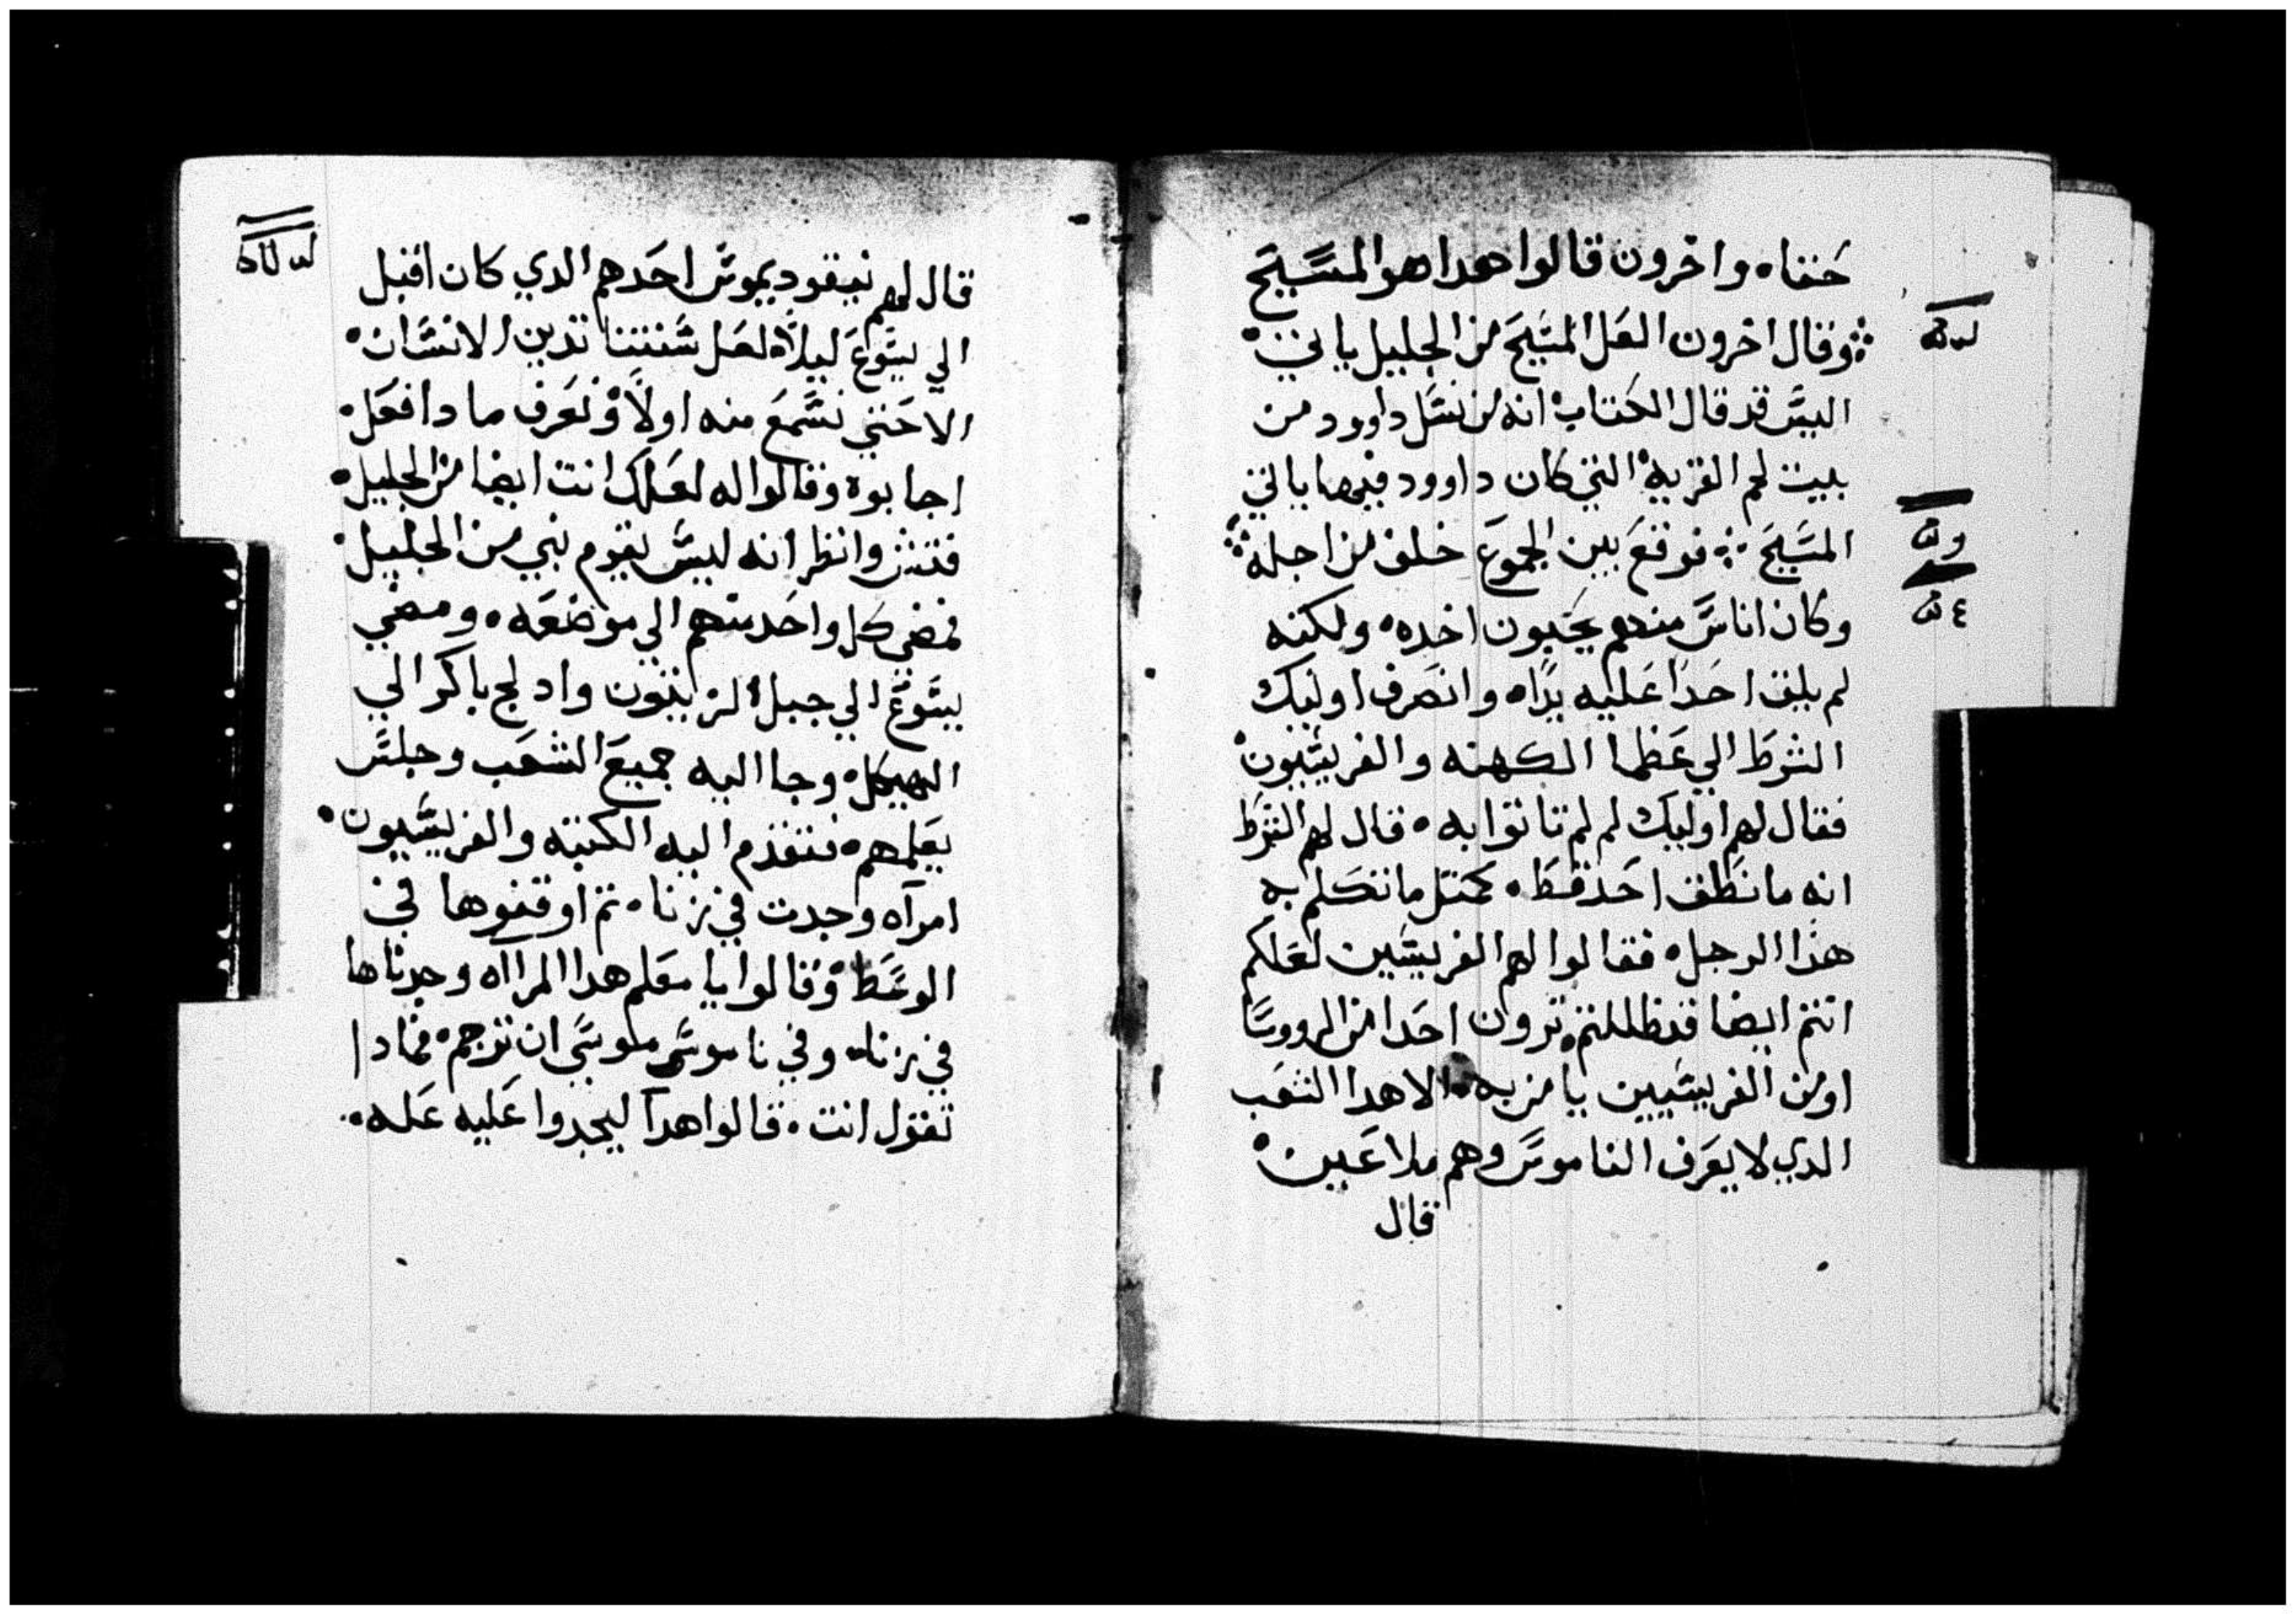 حنفاه واخرون قالوا هدا هو المسيح
وقال اخرون العل المسيح من الجليل ياتي
اليس قد قال الكتاب انه من نسل داوود من
بيت لحم القريه التي كان داوود فيها ياتي
المسيح فوقع بين الجموع خلف من اجله
وكان اناس منهم يحبون اخده ولكنه
لم يلق احدا عليه يداه وانصرف اوليك
الشرط الي عظما الكهنه والفريسيون
فقال لهم اوليك لم لم تاتوا به قال لهم الشرط
انه ما نطق احد قط كمتل ما تتكلم به
هذا الرجل فقالوا لهم الفريسين لعلكم
انتم ايضا قد ظللتم ترون احدا من الرووسا
او من الفريسيين يامن به الا هدا الشعب
الدي لا يعرف الناموس وهم ملاعين
قال
قال لهم نيقوديموس احدهم الدي كان اقبل
الي يسوع ليلاً لعل سنتنا تدين الانسان
الا حتي نسمع منه اولاً ونعرف ما دا فعل
اجابوه وقالوا له لعلك انت ايضا من الجليل
فتش وانظر انه ليس يقوم نبي من الجليل
فمضي كل واحد منهم الي موضعه ومضي
يسوع الي جبل الزيتون وادلج باكر الي
الهيكل وجا اليه جميع الشعب وجلس
يعلمهم فتقدم اليه الكتبه والفريسيون
امرآه وجدت في زناه تم اوقفوها في
الوسط وقالوا يا معلم هدا المرااه وجدناها
في زناه وفي ناموس موسي ان ترجم فمادا
تقول انت قالوا هدا ليجدوا عليه عله